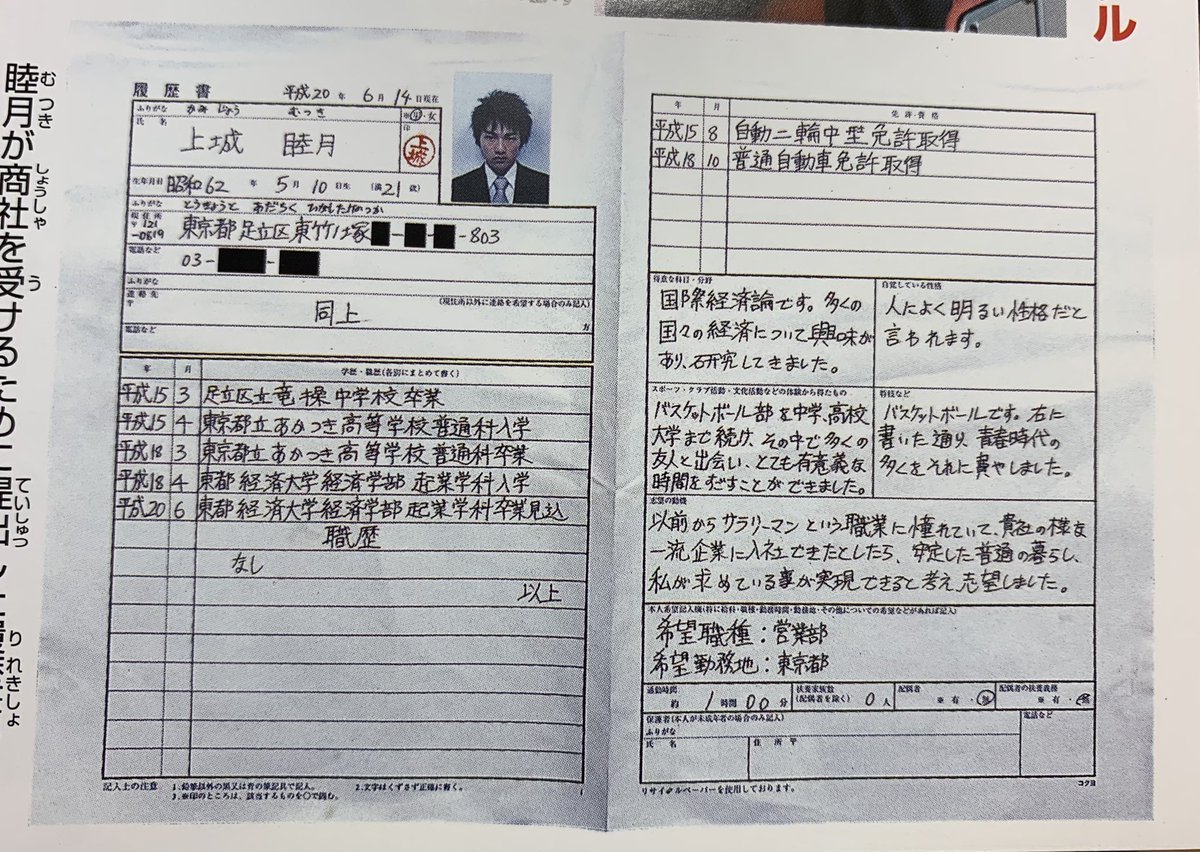 ル
睦月が商社を受けるために提出した履歴書
むつき
しょうしゃ
う
ていしゅつ
りれきしょ
履歴書 平成20年 6月 14日現在
ふりがな かみじょう むつき
※男・女
氏名 上城 睦月
印
上城
生年月日 昭和62年 5月 10日生 (満21歳)
ふりがな とうきょうと あだちく ひがしたけのつか
現住所 〒121-0819
東京都足立区東竹ノ塚 - - -803
電話など
03- -
ふりがな
連絡先 (現住所以外に連絡を希望する場合のみ記入)
〒
同上
方
電話など
年 月 学歴・職歴(各別にまとめて書く)
平成15 3 足立区立竜操中学校卒業
平成15 4 東京都立あかつき高等学校普通科入学
平成18 3 東京都立あかつき高等学校普通科卒業
平成18 4 東都経済大学経済学部起業学科入学
平成20 6 東都経済大学経済学部起業学科卒業見込
職歴
なし
以上
記入上の注意 1.鉛筆以外の黒又は青の筆記具で記入。 2.文字はくずさず正確に書く。
3.※印のところは、該当するものを〇で囲む。
1
年 月 免許・資格
平成15 8 自動二輪中型免許取得
平成18 10 普通自動車免許取得
得意な科目・分野
国際経済論です。多くの
国々の経済について興味が
あり、研究してきました。
自覚している性格
人によく明るい性格だと
言われます。
スポーツ・クラブ活動・文化活動などの体験から得たもの
バスケットボール部を中学、高校
大学まで続け、その中で多くの
友人と出会い、とても有意義な
時間をすごすことができました。
特技など
バスケットボールです。右に
書いた通り、青春時代の
多くをそれに費やしました。
志望の動機
以前からサラリーマンという職業に憧れていて、貴社の様な
一流企業に入社できたとしたら、安定した普通の暮らし、
私が求めている事が実現できると考え、志望しました。
本人希望記入欄(特に給料・職種・勤務時間・勤務地・その他についての希望などがあれば記入)
希望職種：営業部
希望勤務地：東京都
通勤時間 約 1時間 00分
扶養家族数(配偶者を除く) 0人
配偶者 ※有・無
配偶者の扶養義務 ※有・無
保護者(本人が未成年者の場合のみ記入)
ふりがな
氏名
住所 〒
電話など
リサイクルペーパーを使用しております。
コクヨ